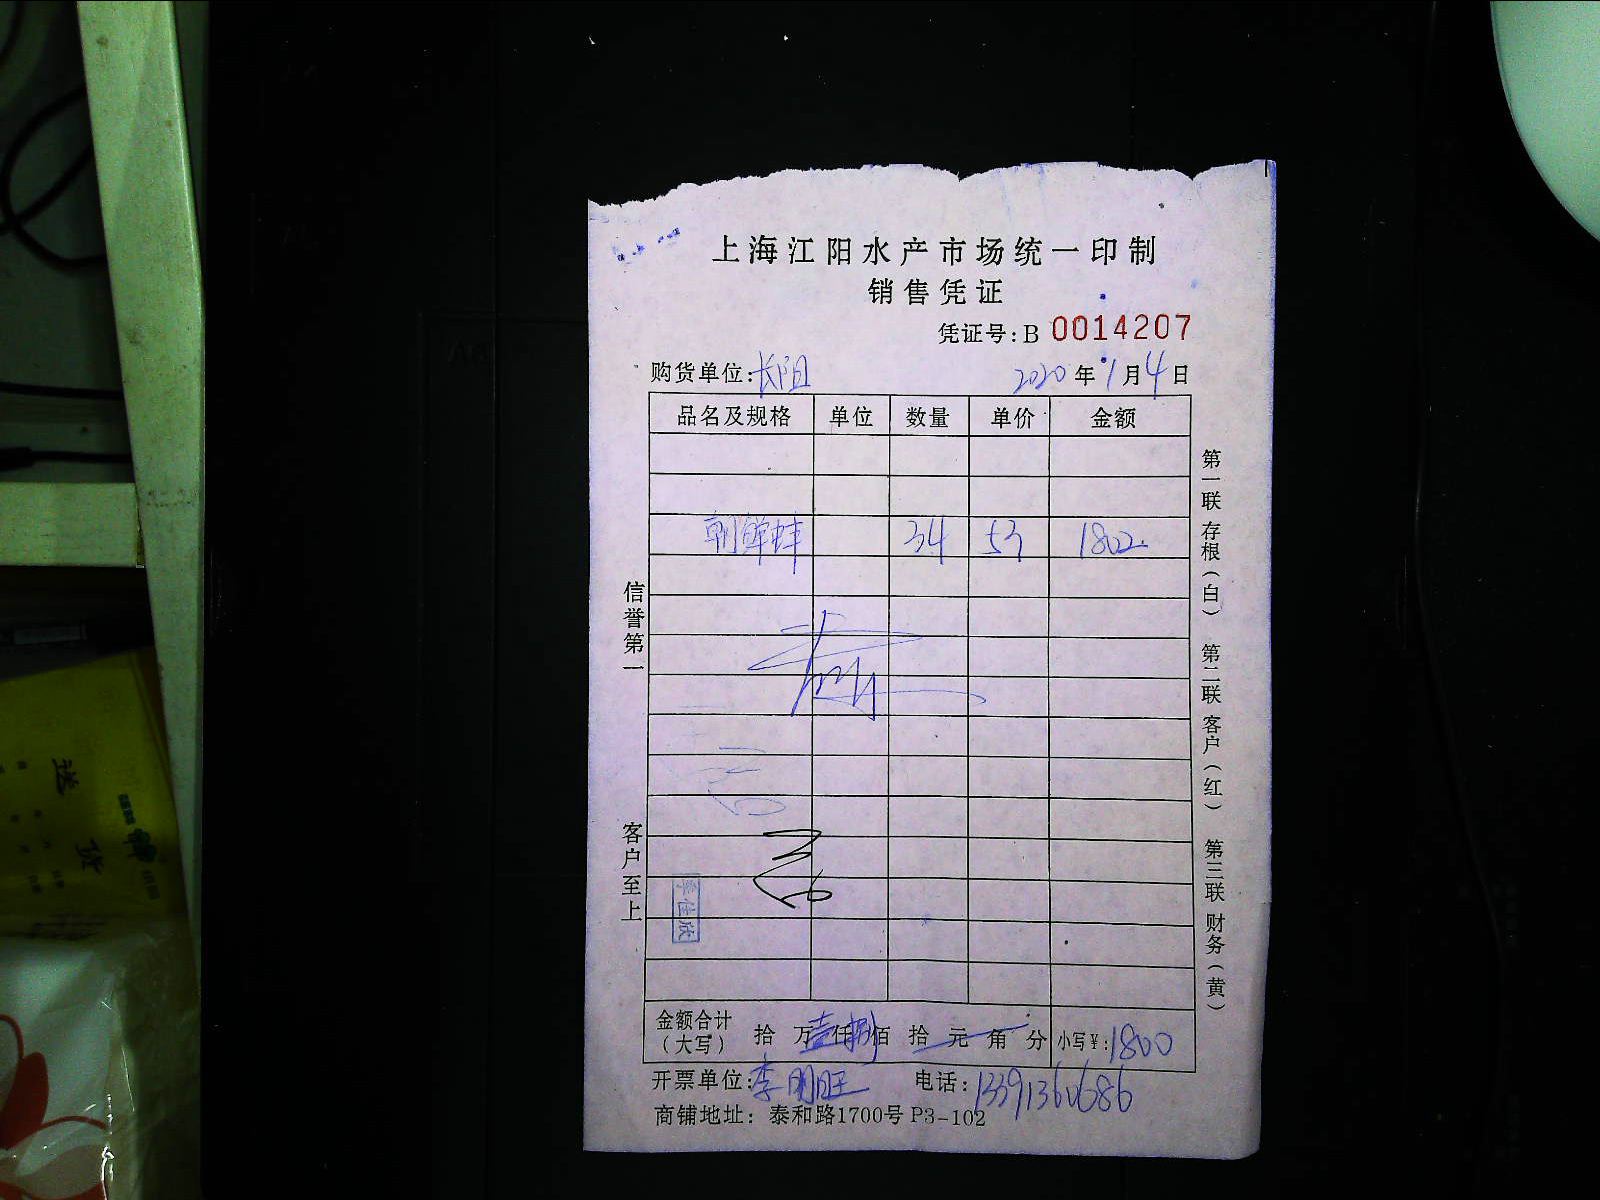 上海江阳水产市场统一印制
销售凭证
凭证号:B 0014207
购货单位:长阳 2020年1月4日
品名及规格 单位 数量 单价 金额
朝鲜蚌 34 53 1802
信誉第一
客户至上
第一联 存根(白) 第二联 客户(红) 第三联 财务(黄)
金额合计(大写) 拾 万壹仟捌佰 拾 元 角 分 小写¥:1800
开票单位:李明旺 电话:13391360686
商铺地址: 泰和路1700号 P3-102
送
货